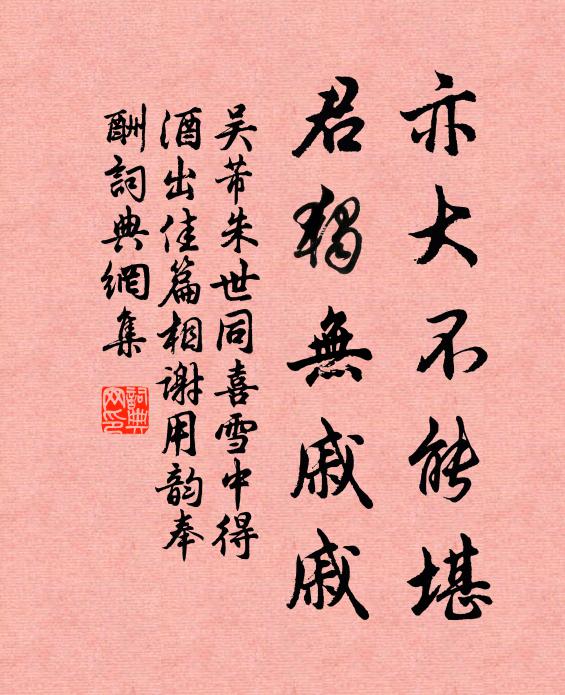 亦大不能堪
君獨無戚戚
吴芾朱世同喜雪中得
酒出佳篇相谢用韵奉
酬詞典網集
詞典
网印